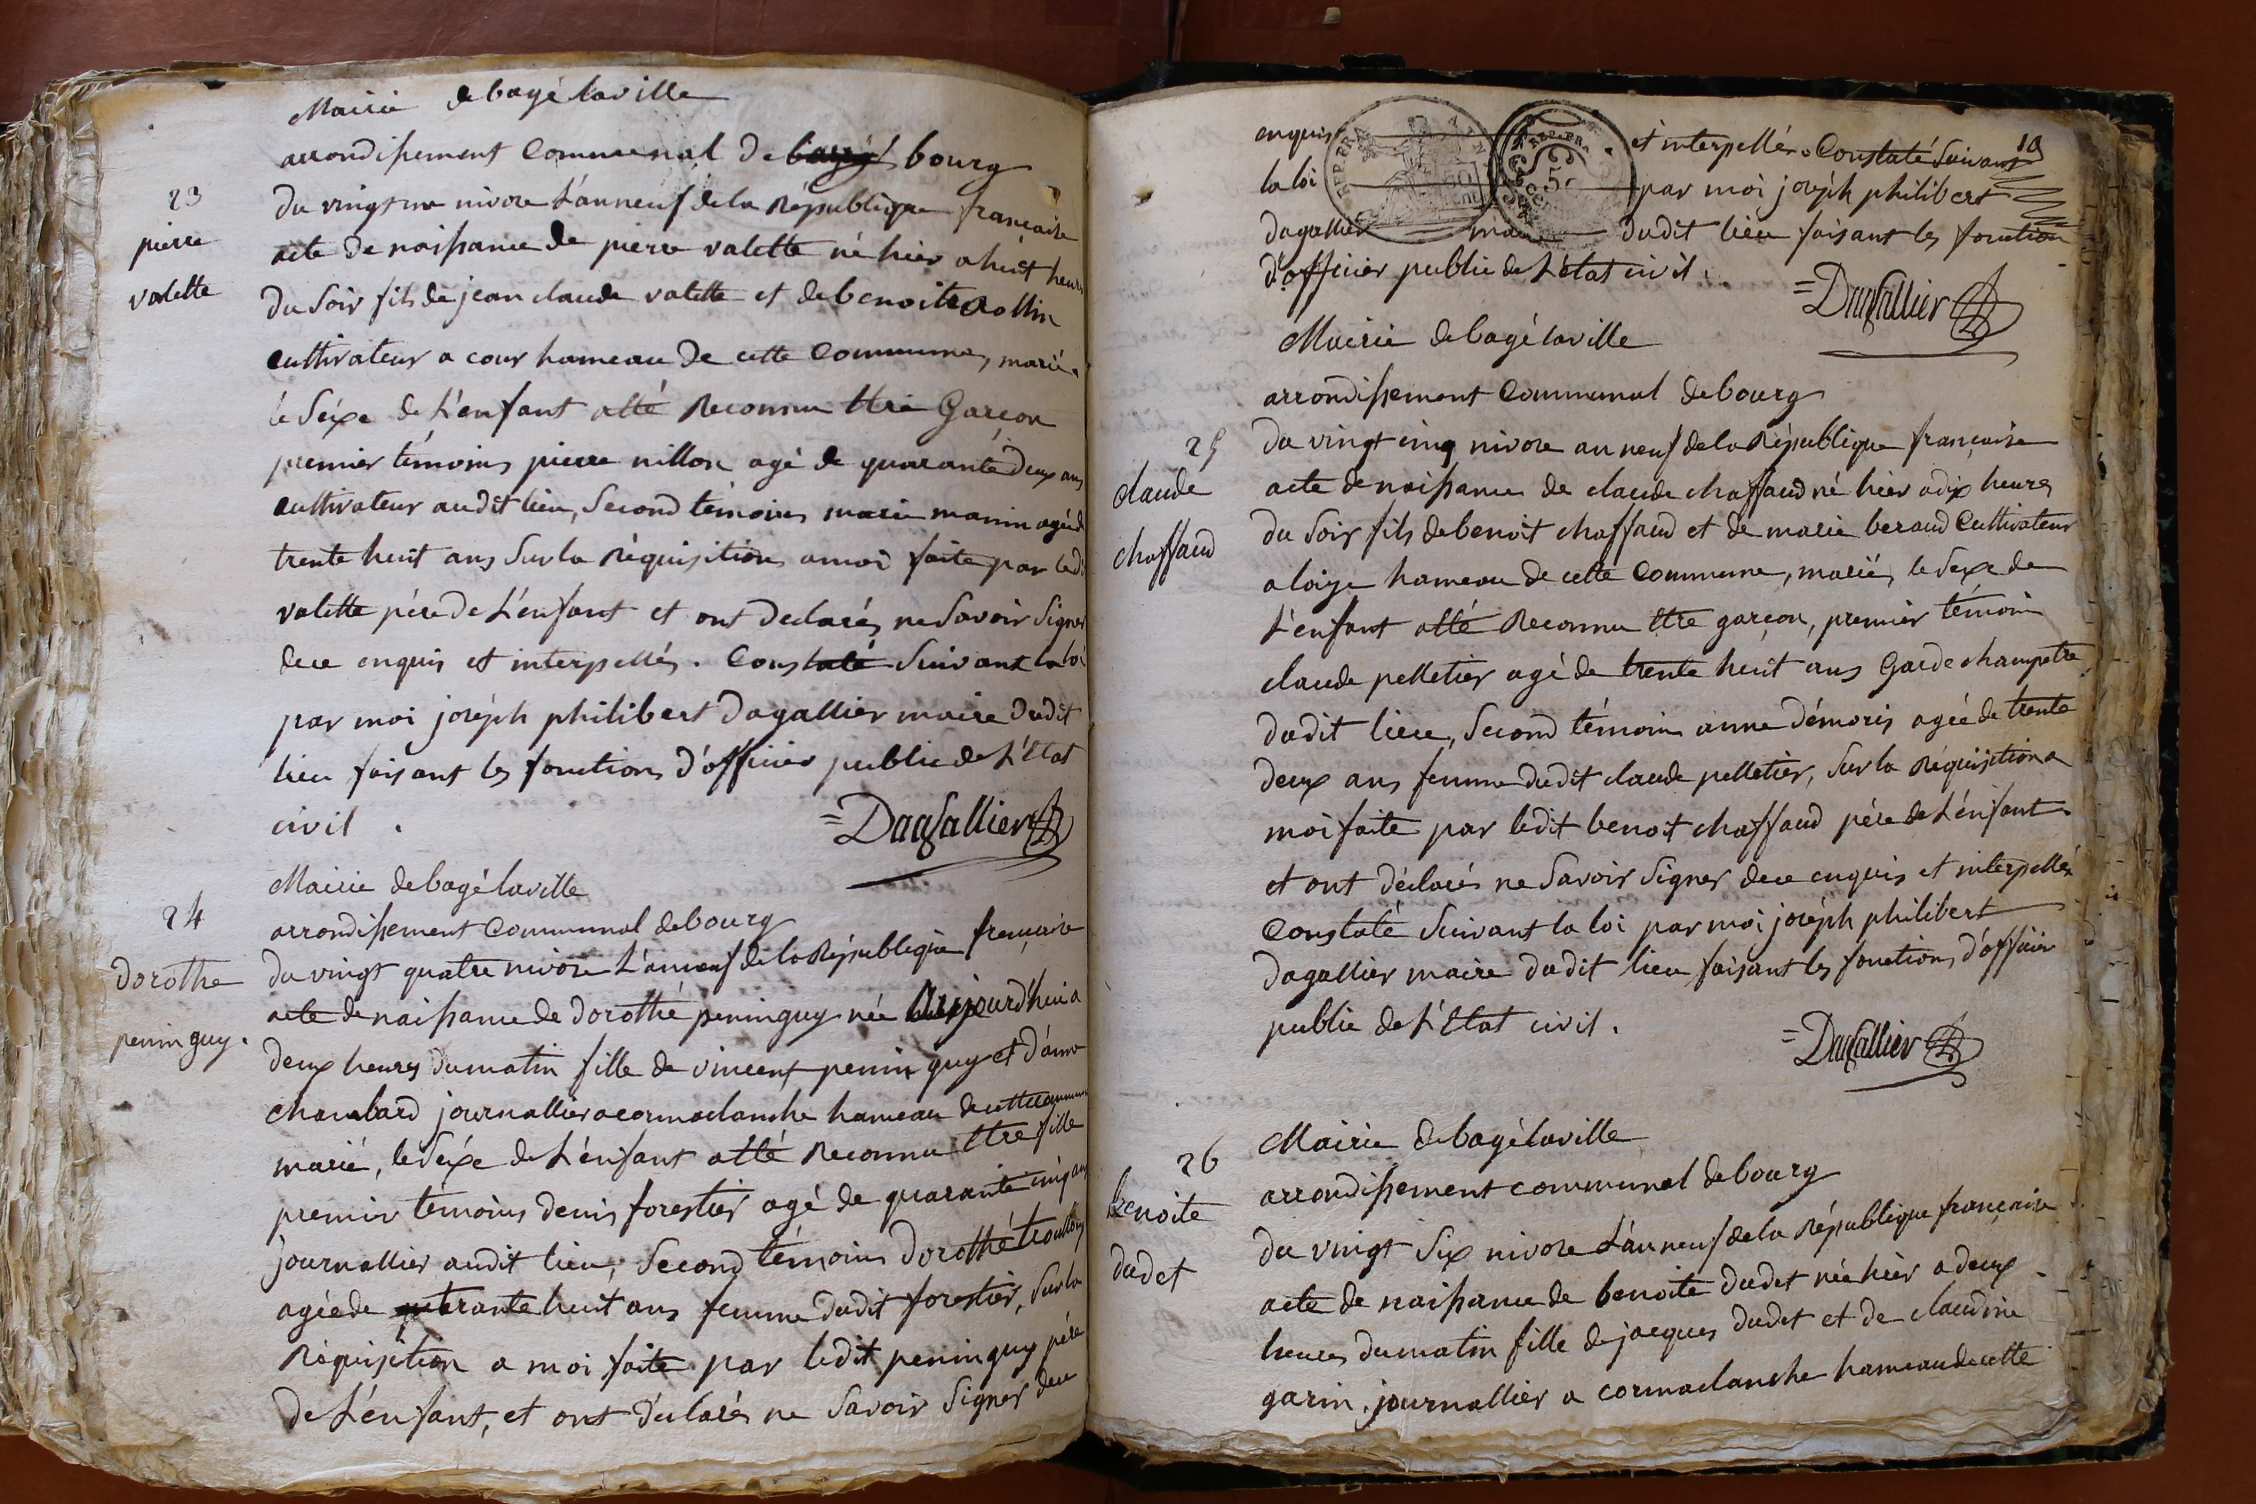 Mairie de bagé laville
arrondissement Communal de bourg
23
du vingt un nivose L'an neuf de la République française
pierre
acte de naissance de pierre valette né hier a huit heures
valette
du Soir fils de jean claude valette et de benoite Rollin
cultivateur a cour hameau de cette Commune, marié,
le Séxe de L'enfant atté Reconnu Etre Garçon
premier témoins pierre nillon agé de quarante deux ans
cultivateur audit lieu, Second témoins marie manin agée de
trente huit ans Sur la Réquisition a moi faite par ledit
valette pére de L'enfant et ont declarés ne Savoir Signer
dece enquis et interpellés. Constaté Suivant la loi
par moi joséph philibert dagallier maire dudit
lieu faisant les fonctions d'officier public de L'Etat
civil.
=Dagallier
Mairie de bagé laville
arrondissement Communal de bourg
24
du vingt quatre nivose L'an neuf de la République française
dorothe
acte de naissance de dorothé peninguy née aujourd'hui a
penin guy.
deux heures du matin fille de vincent penin guy et d'anne
chambard journallier a cormaclanche hameau de cette commune
marié, le Séxe de L'énfant atté Reconnu Etre fille
premier témoins denis forestier agé de quarante cinq ans
journallier audit lieu, Second témoins dorothé
agée de quarante huit ans femme dudit forestier, Sur la
Réquisition a moi faite par ledit peninguy pére
de L'énfant, et ont déclarés ne Savoir Signer dece
10
enquis et interpellés. Constaté Suivant
la loi par moi joséph philibert
dagallier maire dudit lieu faisant les fonction
d'officier public de L'état civil.
=Dagallier
Mairie de bagé laville
arrondissement Communal de bourg
25
du vingt cinq nivose an neuf de la République française
claude
acte de naissance de claude chaffaud né hier a dix heures
chaffaud
du Soir fils de benoit chaffaud et de marie beraud Cultivateur
a loize hameau de cette Commune, marié, le Sexe de
L'enfant atté Reconnu Etre garçon, premier témoin
claude pelletier agé de trente huit ans Garde champetre
dudit lieu, Second témoin anne démoris agée de trente
deux ans femme dudit claude pelletier, Sur la Réquisition a
moi faite par ledit benoit chaffaud pére de L'énfant
et ont déclarés ne Savoir Signer dece enquis et interpellés
Constaté Suivant la loi par moi joséph philibert
dagallier maire dudit lieu faisant les fonctions d'officier
public de L'Etat civil.
=Dagallier
Mairie de bagé laville
26
arrondissement communal de bourg
benoite
du vingt Six nivose L'an neuf de la République française
dudet
acte de naissance de benoite dudet née hier a deux
heures du matin fille de jacques dudet et de claudine
garin, journallier a cormaclanche hameau de cette